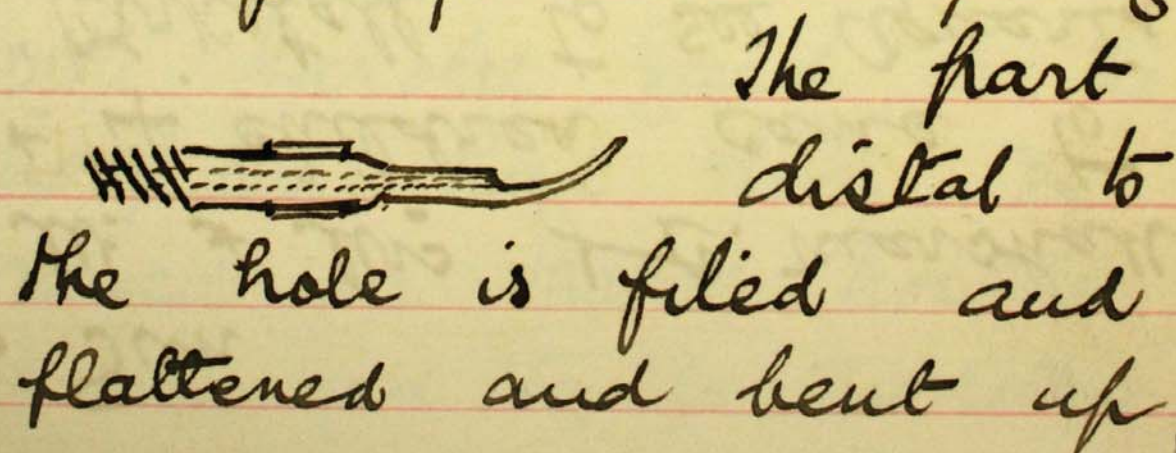 The part
distal to
the hole is filed and
flattened and bent up